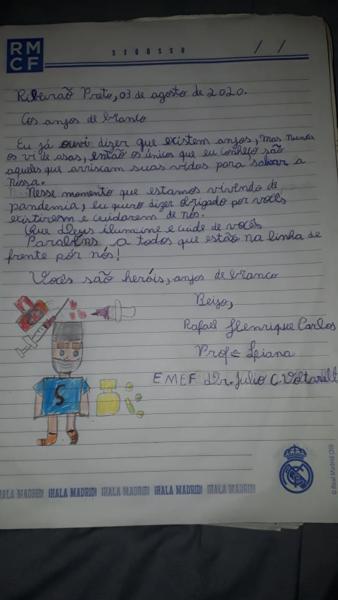 RM
CF
SEGOSSO
/ /
Ribeirão Preto, 03 de agosto de 2020.
Aos anjos de branco
Eu já ouvi dizer que existem anjos, mas nunca
os vi de asas, então os únicos que eu conheço são
aqueles que arriscam suas vidas para salvar a
nossa.
Nesse momento que estamos vivendo de
pandemia, eu quero dizer obrigado por vocês
existirem e cuidarem de nós.
Que Deus ilumine e cuide de vocês
Parabéns a todos que estão na linha de
frente por nós!
Vocês são heróis, anjos de branco
Beijo,
Rafael Henrique Carlos
Profe Liana
EMEF Dr. Julio C. Voltarelli
S
¡HALA MADRID! ¡HALA MADRID! ¡HALA MADRID! ¡HALA MADRID! ¡HALA MADRID!
© Real Madrid